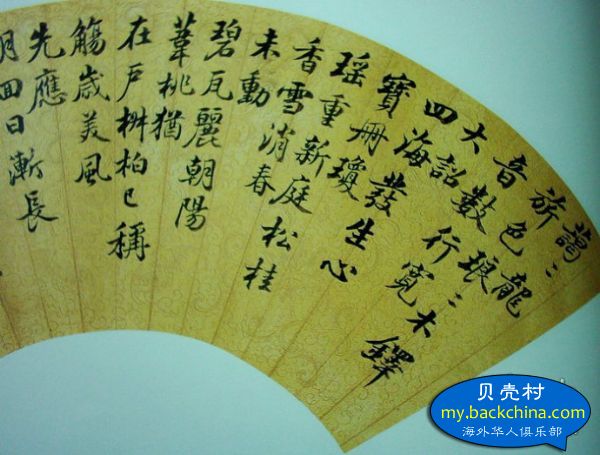 藹〻龍
旂色琅〻木鐸
音數行寬
大詔
四海發生心
寶冊瓊
瑤重新庭松桂
香雪消春
未動
碧瓦麗朝陽
葦桃猶
在戶椒柏已稱
觴歲美風
先應
回日漸長
贝壳村
my.backchina.com
海外华人俱乐部